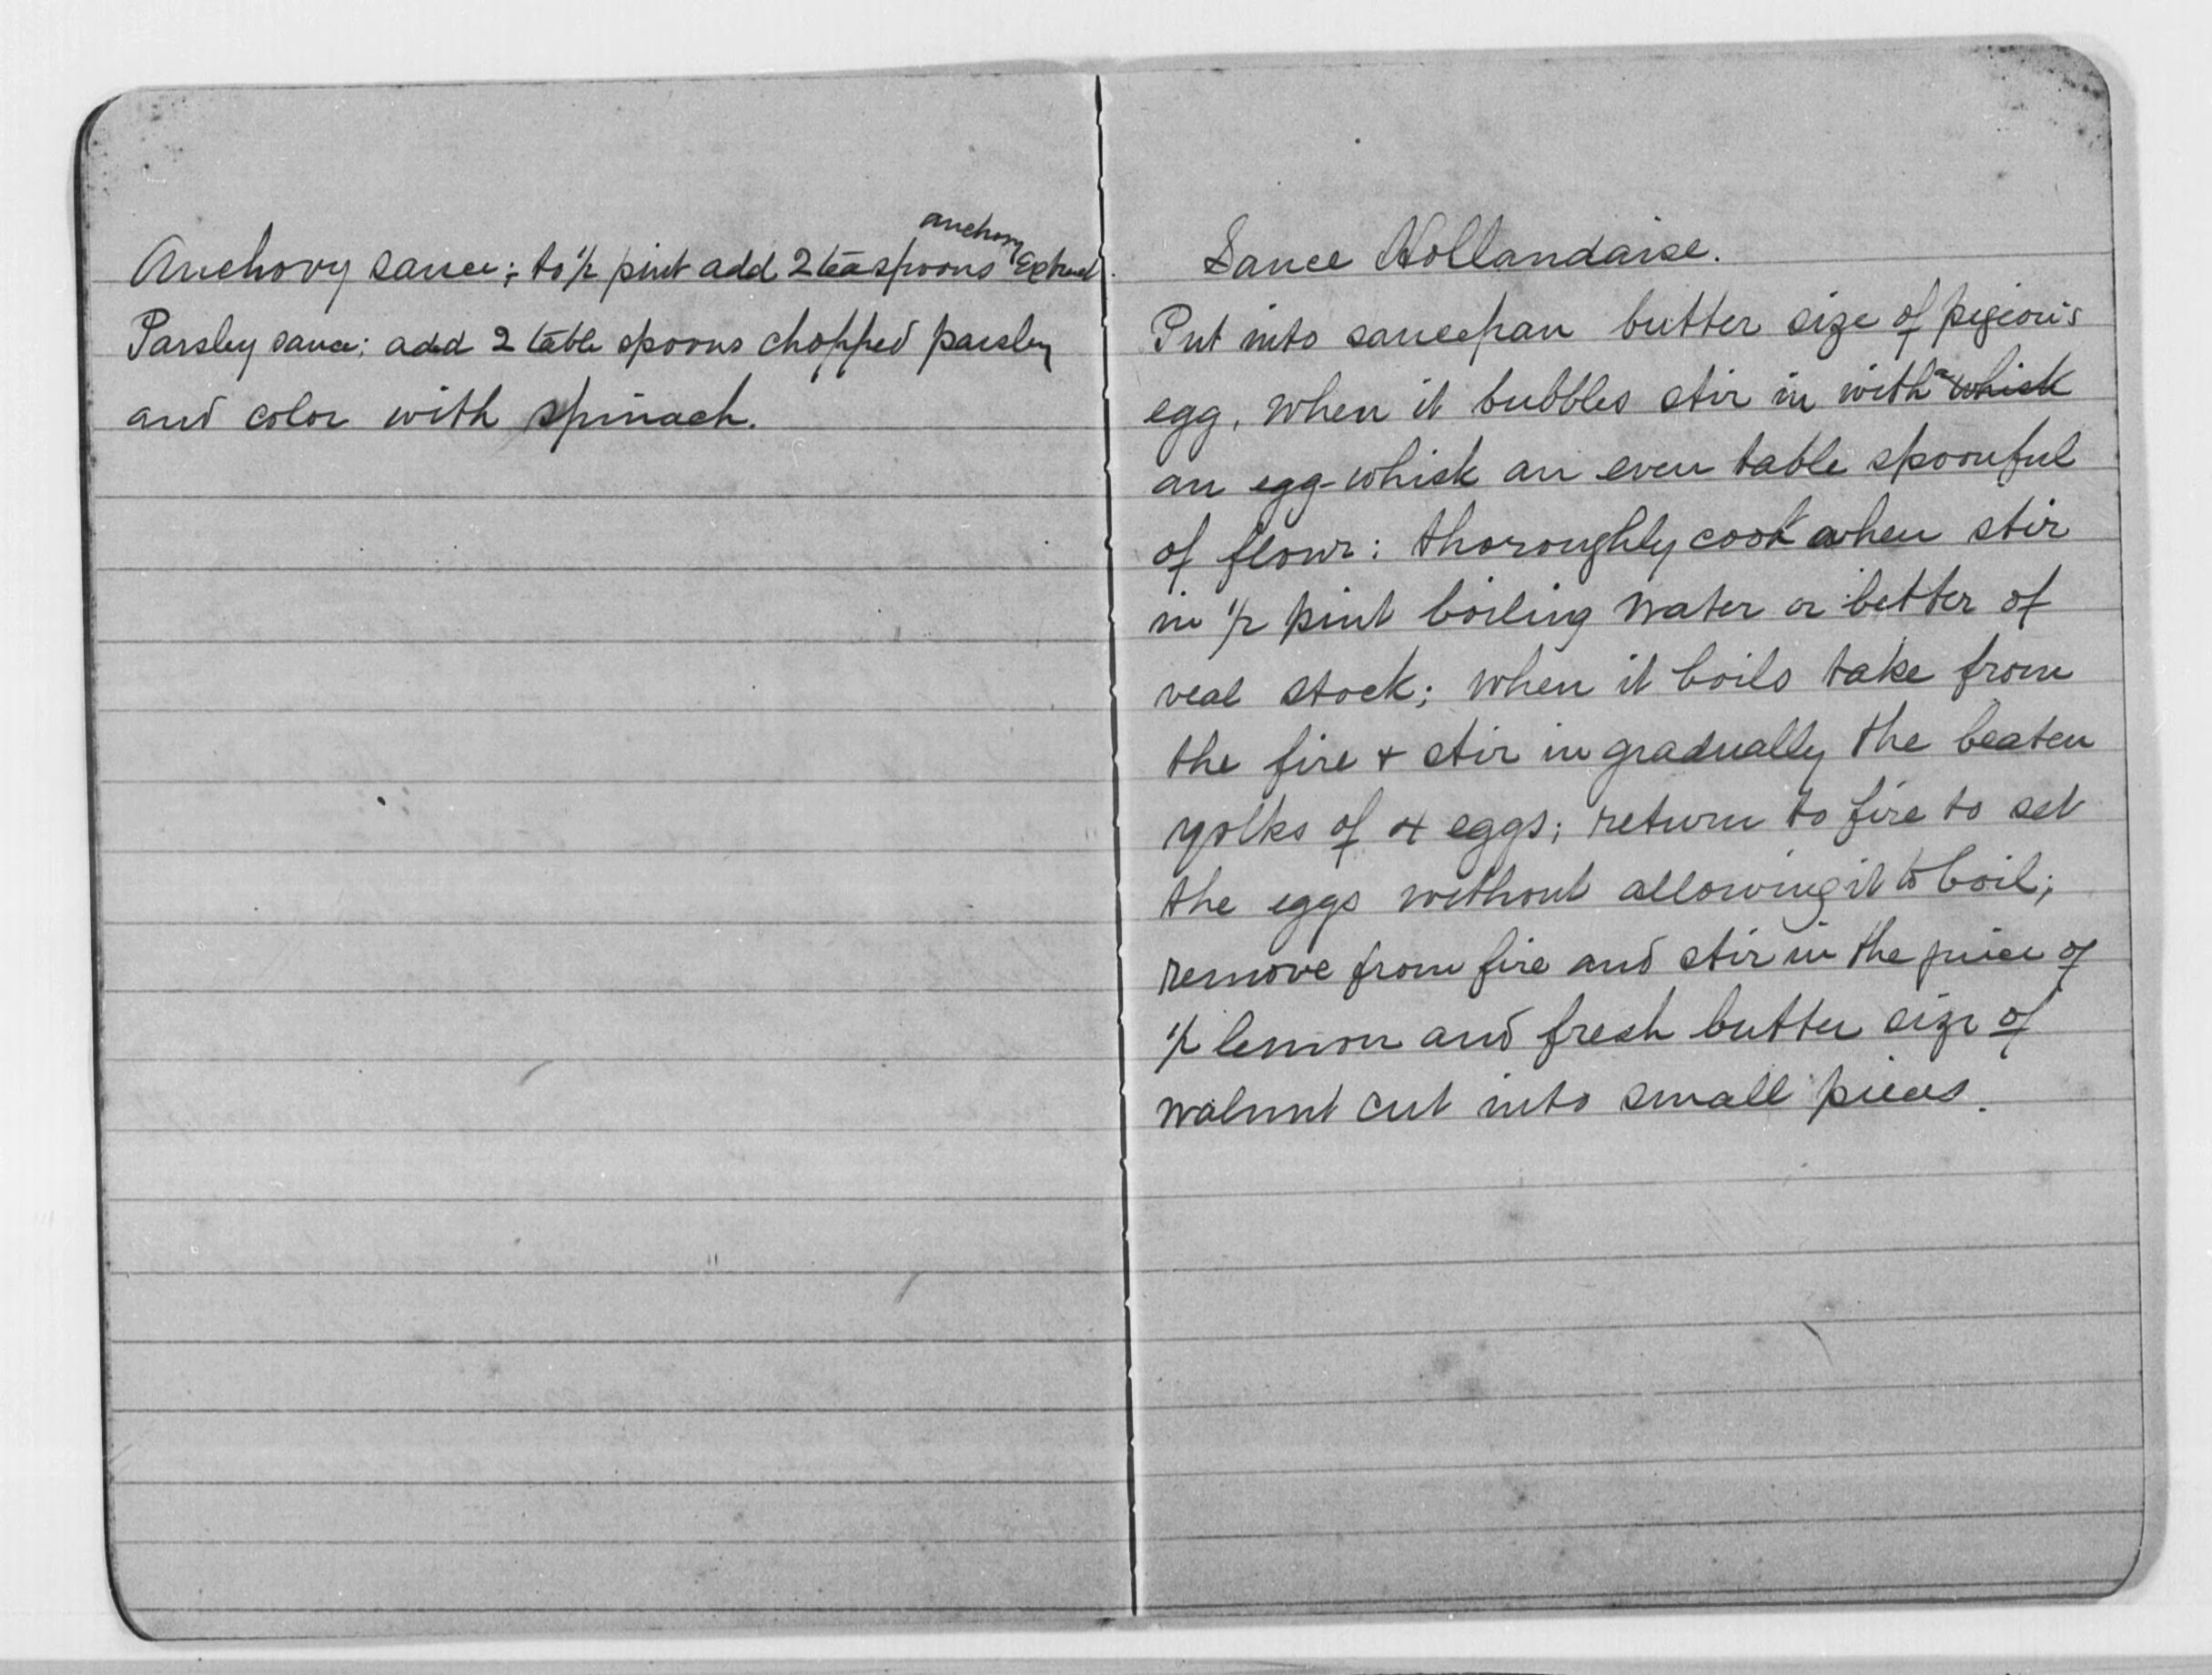 Anchovy sauce; to ½ pint add 2 teaspoons anchovy Extract.
Parsley sauce; add 2 table spoons chopped parsley
and color with spinach.
Sauce Hollandaise.
Put into saucepan butter size of pigeon's
egg, when it bubbles stir in with a whisk
an egg-whisk an even table spoonful
of flour: thoroughly cook when stir
in ½ pint boiling water or better of
veal stock; when it boils take from
the fire + stir in gradually the beaten
yolks of 4 eggs; return to fire to set
the eggs without allowing it to boil;
remove from fire and stir in the juice of
½ lemon and fresh butter size of
walnut cut into small pieces.